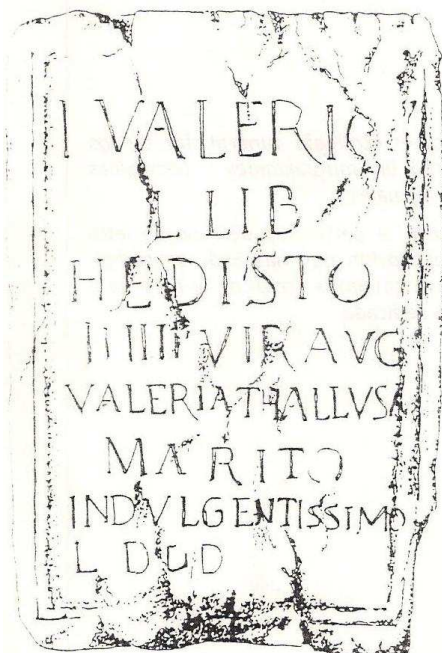 L VALERIO
L LIB
HEDISTO
IIIIII VIR AVG
VALERIA THALLVSA
MARITO
INDVLGENTISSIMO
L D D D